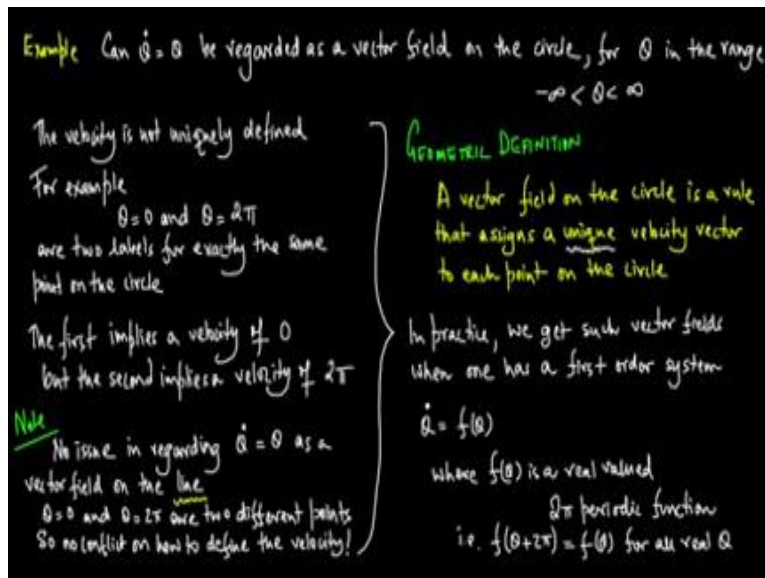 Example Can θ̇ = θ be regarded as a vector field on the circle, for θ in the range
-∞ < θ < ∞
The velocity is not uniquely defined
For example
θ = 0 and θ = 2π
are two labels for exactly the same
point on the circle
The first implies a velocity of 0
but the second implies a velocity of 2π
Note
No issue in regarding θ̇ = θ as a
vector field on the line
θ = 0 and θ = 2π are two different points
So no conflict on how to define the velocity!
GEOMETRIC DEFINITION
A vector field on the circle is a rule
that assigns a unique velocity vector
to each point on the circle
In practice, we get such vector fields
when one has a first order system
θ̇ = f(θ)
where f(θ) is a real valued
2π periodic function
i.e. f(θ+2π) = f(θ) for all real θ